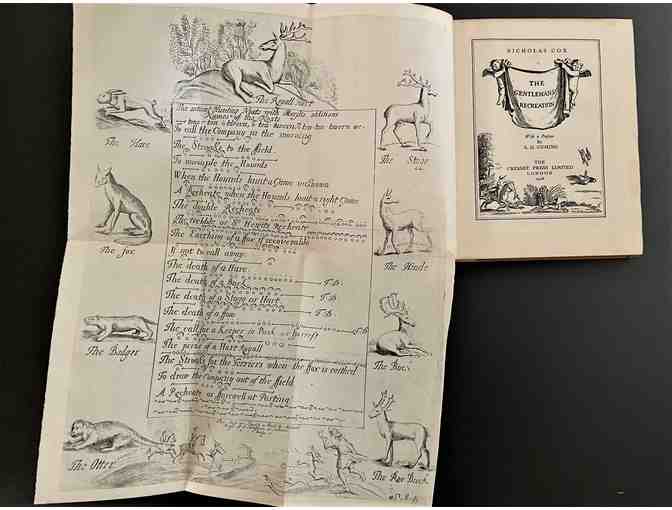 The Regall Hart
The antient Hunting Notes with
Names of the Noats
To call the Company in the morning
The Stroake to the ffield
To uncouple the Hounds
When the Hounds hunt a Game unknown
A Recheate when the Hounds hunt a right Game
The double Recheate
The Earthing of a fox if recoverable
if not to call away
The death of a Hare
The death of a Buck
The death of a Stagg or Hart
The death of a fox
The call for a Keeper in Park or fforrest
The prise of a Hart Royall
The Stroake for the Terriers when the fox is earthed
To draw the Company out of the ffield
A Recheate or farewell at Parting
The Hare
The fox
The Badger
The Otter
The Hinde
The Roe Buck
NICHOLAS COX
THE
GENTLEMAN'S
RECREATION
With a Preface
By
E. D. CUMING
THE
CRESSET PRESS LIMITED
LONDON
1928